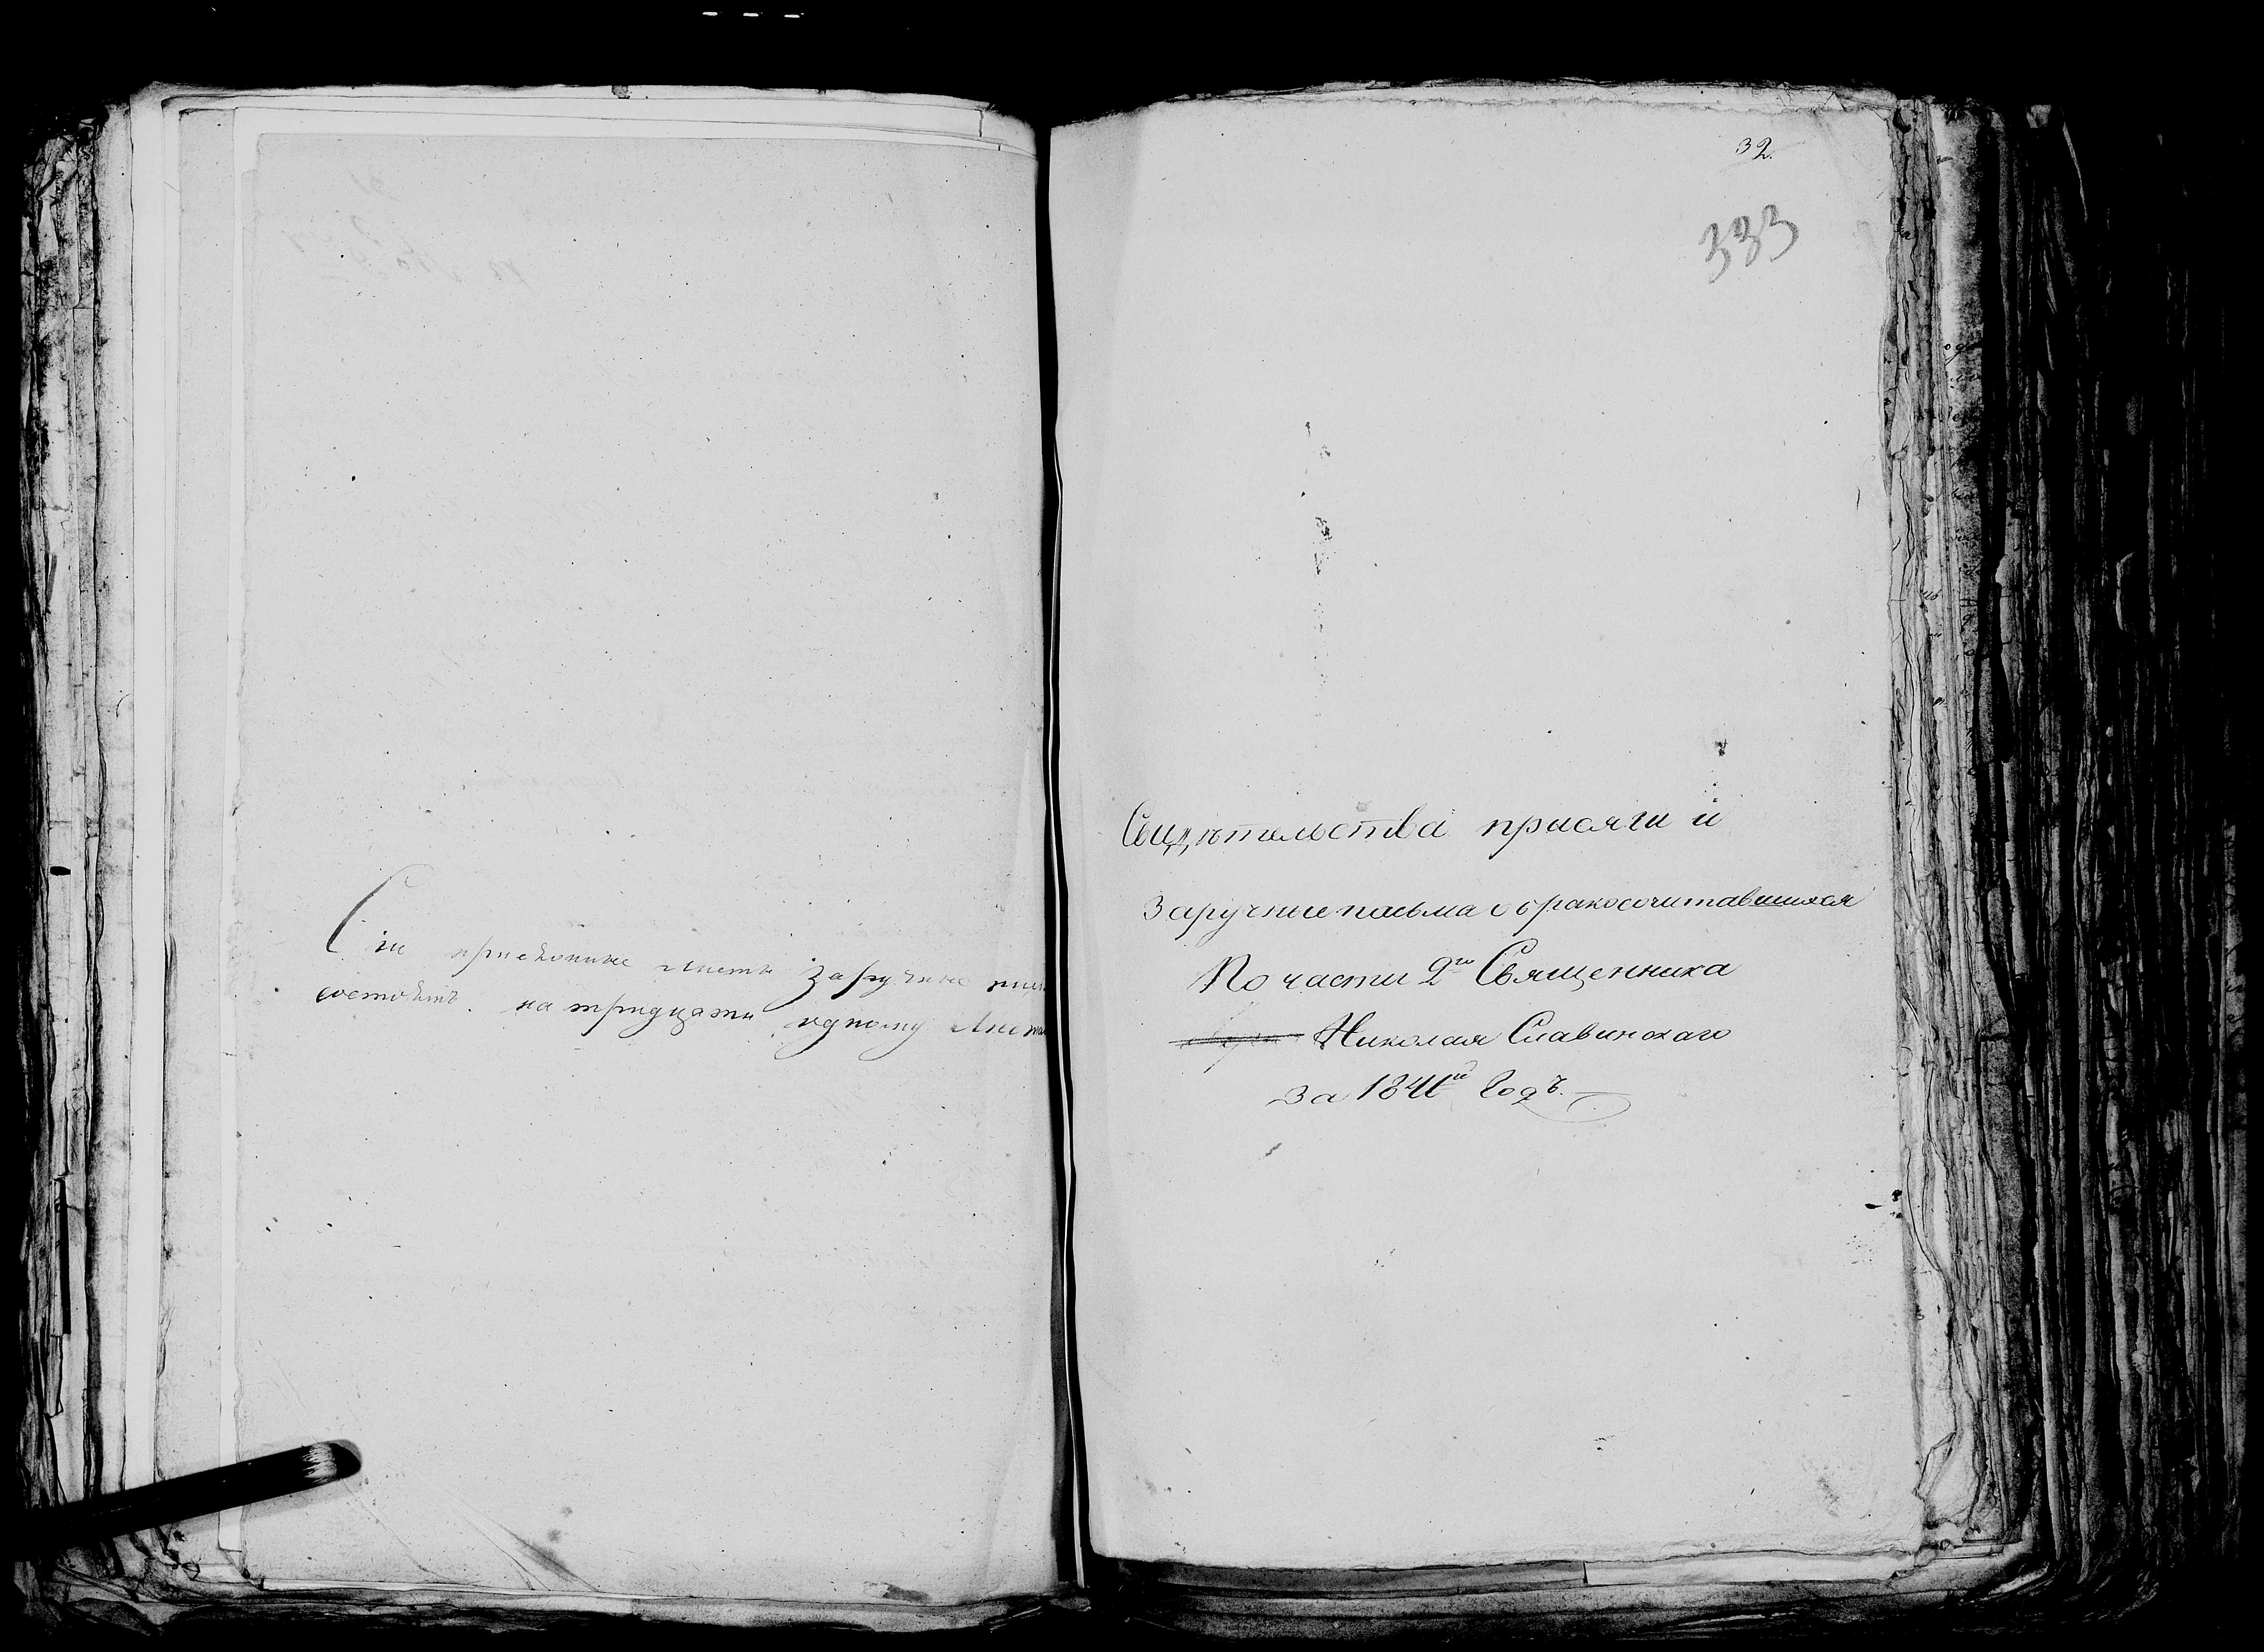 Сіи присяжные листы заручные
состоятъ. на тридцати одному
32.
333
Свидѣтельства присяги и
Заручные письма о бракосочитавшихся
По части 2го Священника
Николая Славинскаго
за 1841й Годъ.